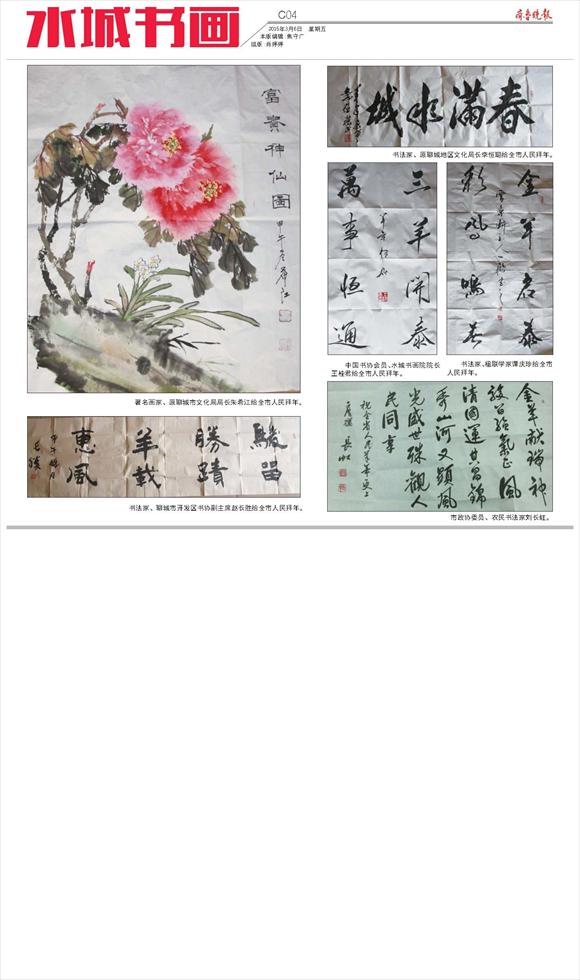 水城书画
C04
2015年3月6日 星期五
本版编辑:焦守广
组版:肖婷婷
齐鲁晚报
富贵神仙圖
甲午
著名画家、原聊城市文化局局长朱希江给全市人民拜年。
駿留
勝蹟
羊載
惠風
书法家、聊城市开发区书协副主席赵长胜给全市人民拜年。
春滿水城
书法家、原聊城地区文化局长李恒聪给全市人民拜年。
三羊開泰
萬事恒通
中国书协会员、水城书画院院长
王桂君给全市人民拜年。
金羊啟泰
彩鳳鳴春
书法家、楹联学家谭庆珍给全市
人民拜年。
金羊献瑞神
清國運其昌錦
秀山河又顯風
光盛世殊觀人
民同享
市政协委员、农民书法家刘长虹。